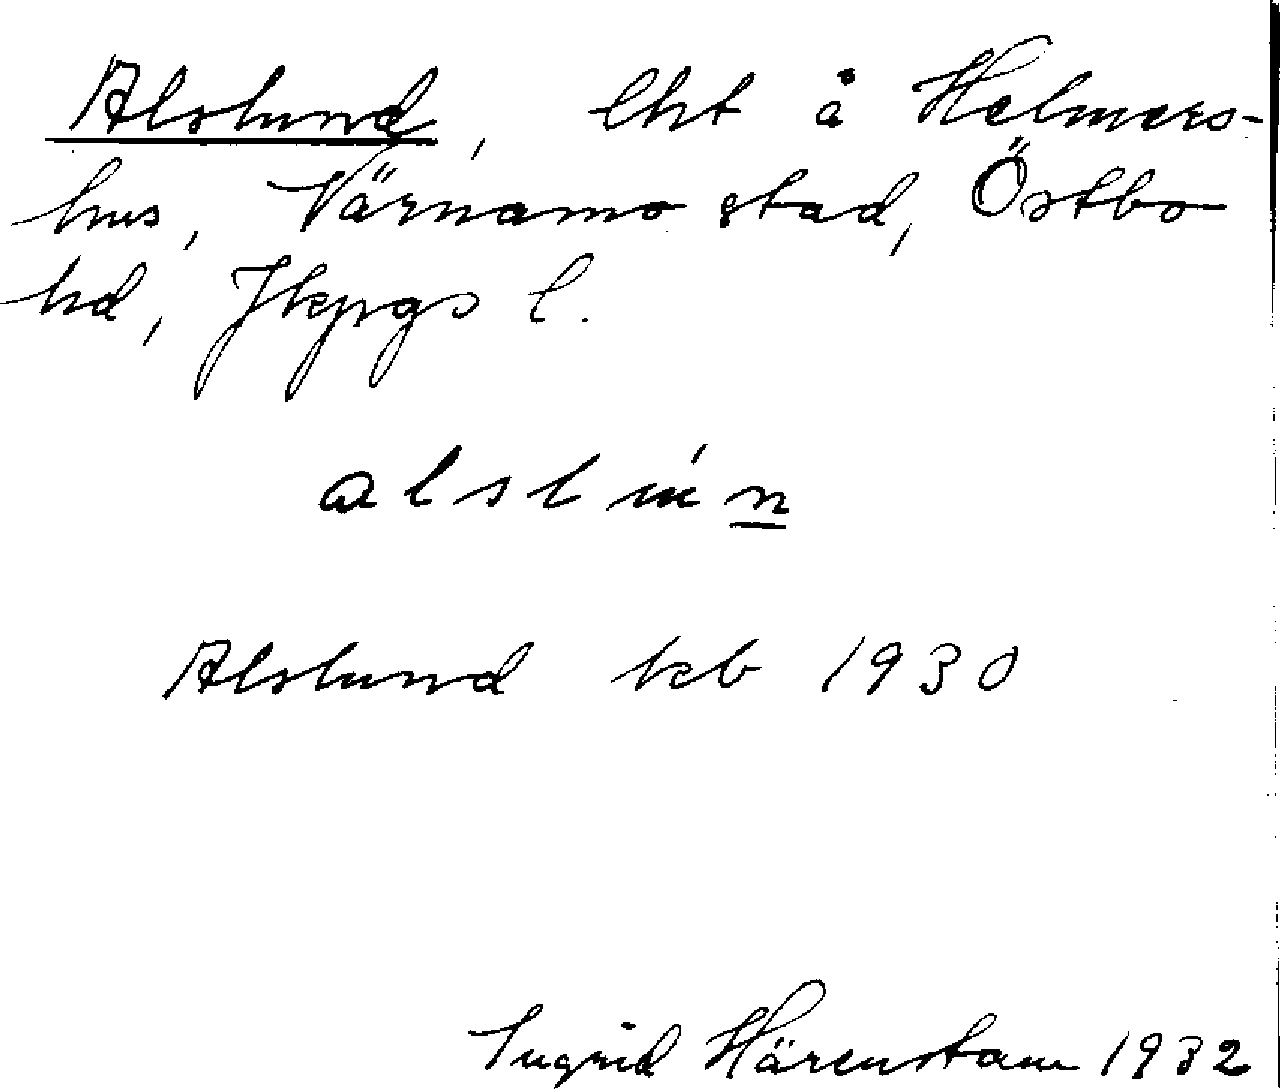 Alslund, lht å Helmers-
hus, Värnamo stad, Östbo
hd, Jkpgs l.
alslún
Alslund kb 1930
Ingrid Härenstam 1932